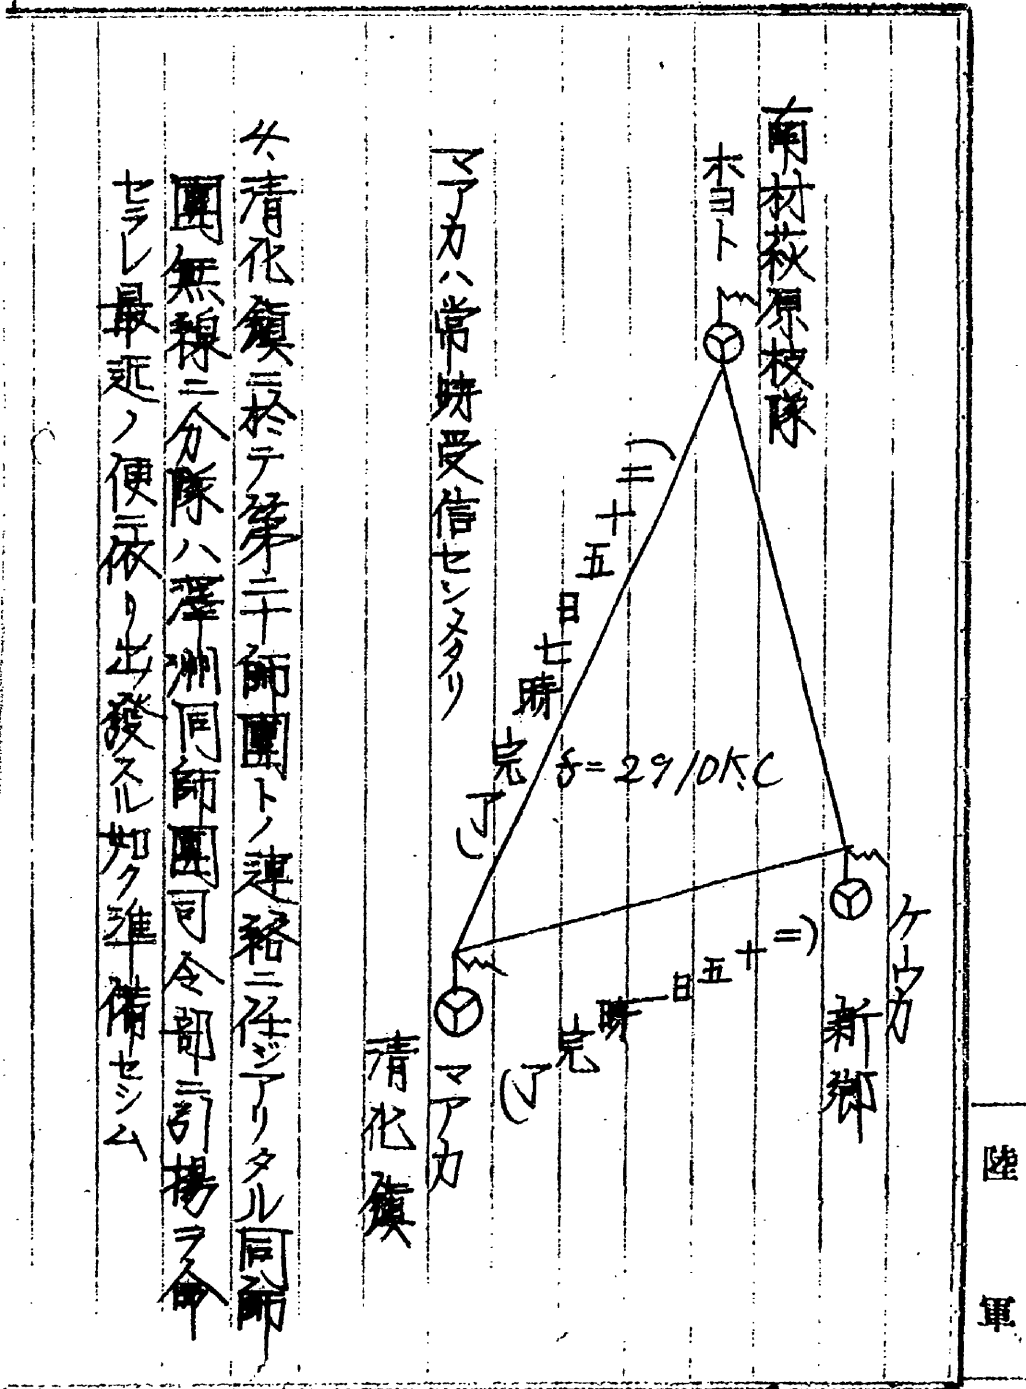 南村萩原枝隊
ホヨト
ケウカ
新郷
(二十五日七時完了)
f=2910K.C
(二十五日一時完了)
マアカ
清化鎮
マアカハ常時受信センメタリ
4、清化鎮ニ於テ第二十師團トノ連絡ニ任ジアリタル同師
團無線二分隊ハ澤洲同師團司令部ニ引揚ヲ命
セラレ最近ノ便ニ依リ出發スル如ク準備セシム
陸軍